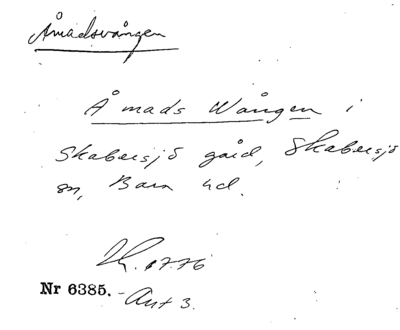 Åmadsvången
Åmads Wången i
Skabersjö gård, Skabersjö
sn, Bara hd.
1776
Nr 6385. Akt 3.